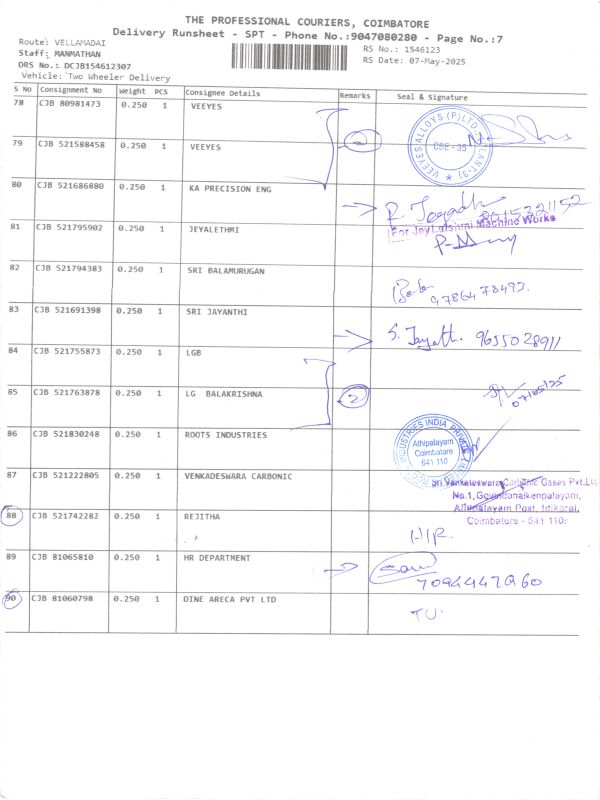 THE PROFESSIONAL COURIERS, COIMBATORE
Delivery Runsheet - SPT - Phone No.:9047080280 - Page No.:7
Route: VELLAMADAI
Staff: MANMATHAN
DRS No.: DCJB154612307
Vehicle: Two Wheeler Delivery
RS No.: 1546123
RS Date: 07-May-2025
S No Consignment No Weight PCS Consignee Details Remarks Seal & Signature
78 CJB 80981473 0.250 1 VEEYES
79 CJB 521588458 0.250 1 VEEYES
2
VEEYES ALLOYS (P) LTD
CBE - 35
80 CJB 521686880 0.250 1 KA PRECISION ENG
81 CJB 521795902 0.250 1 JEYALETHMI
For Jey Lakshmi Machine Works
82 CJB 521794383 0.250 1 SRI BALAMURUGAN
9786478493.
83 CJB 521691398 0.250 1 SRI JAYANTHI
9655028911
84 CJB 521755873 0.250 1 LGB
85 CJB 521763878 0.250 1 LG BALAKRISHNA
2
07/05/25
86 CJB 521830248 0.250 1 ROOTS INDUSTRIES
INDUSTRIES INDIA PRIVATE
Athipalayam
Coimbatore
641 110
87 CJB 521222805 0.250 1 VENKADESWARA CARBONIC
Sri Venkateswara Carbonic Gases Pvt.Ltd
No.1, Govindanaikenpalayam,
Athipalayam Post, Idikarai,
Coimbatore - 641 110
88 CJB 521742282 0.250 1 REJITHA
H/R
89 CJB 81065810 0.250 1 HR DEPARTMENT
7094447960
90 CJB 81060798 0.250 1 DINE ARECA PVT LTD